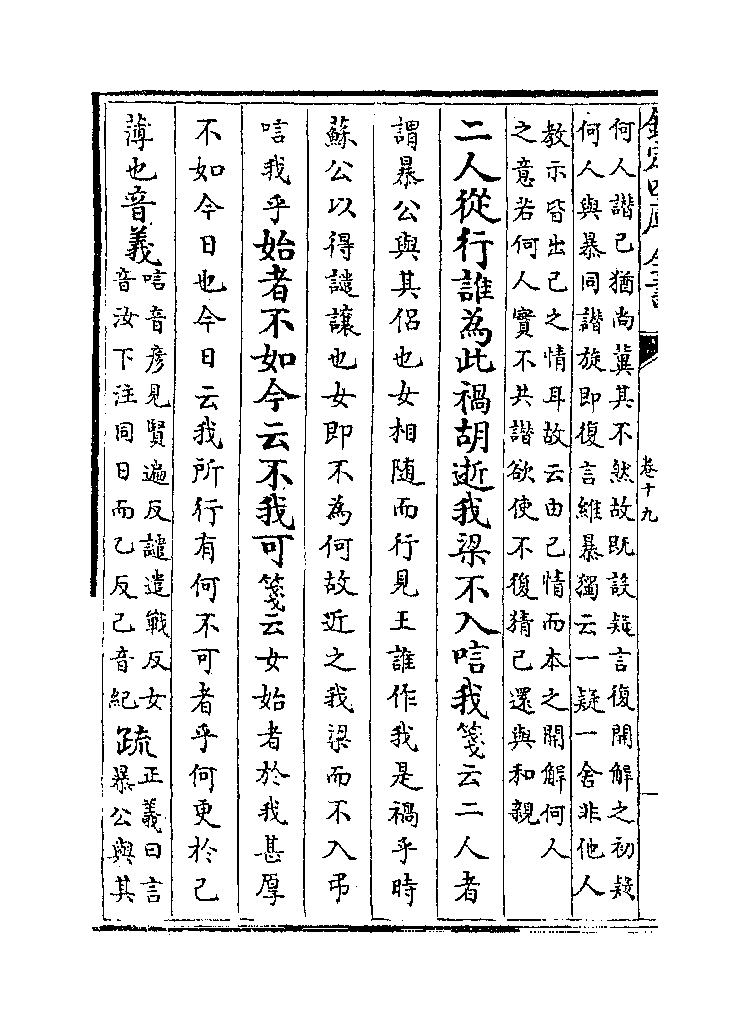 欽定四庫全書
卷十九
何人譖己猶尚冀其不然故既設疑言復開解之初疑
何人與暴同譖旋即復言維暴獨云一疑一舍非他人
教示皆出己之情耳故云由己情而本之開解何人
之意若何人實不共譖欲使不復猜己還與和親
二人從行誰為此禍胡逝我梁不入唁我箋云二人者
謂暴公與其侶也女相隨而行見王誰作我是禍乎時
蘇公以得譴讓也女即不為何故近之我梁而不入弔
唁我乎始者不如今云不我可箋云女始者於我甚厚
不如今日也今日云我所行有何不可者乎何更於己
薄也音義唁音彥見賢遍反譴遣戰反女
音汝下注同日而乙反己音紀疏正義曰言
暴公與其